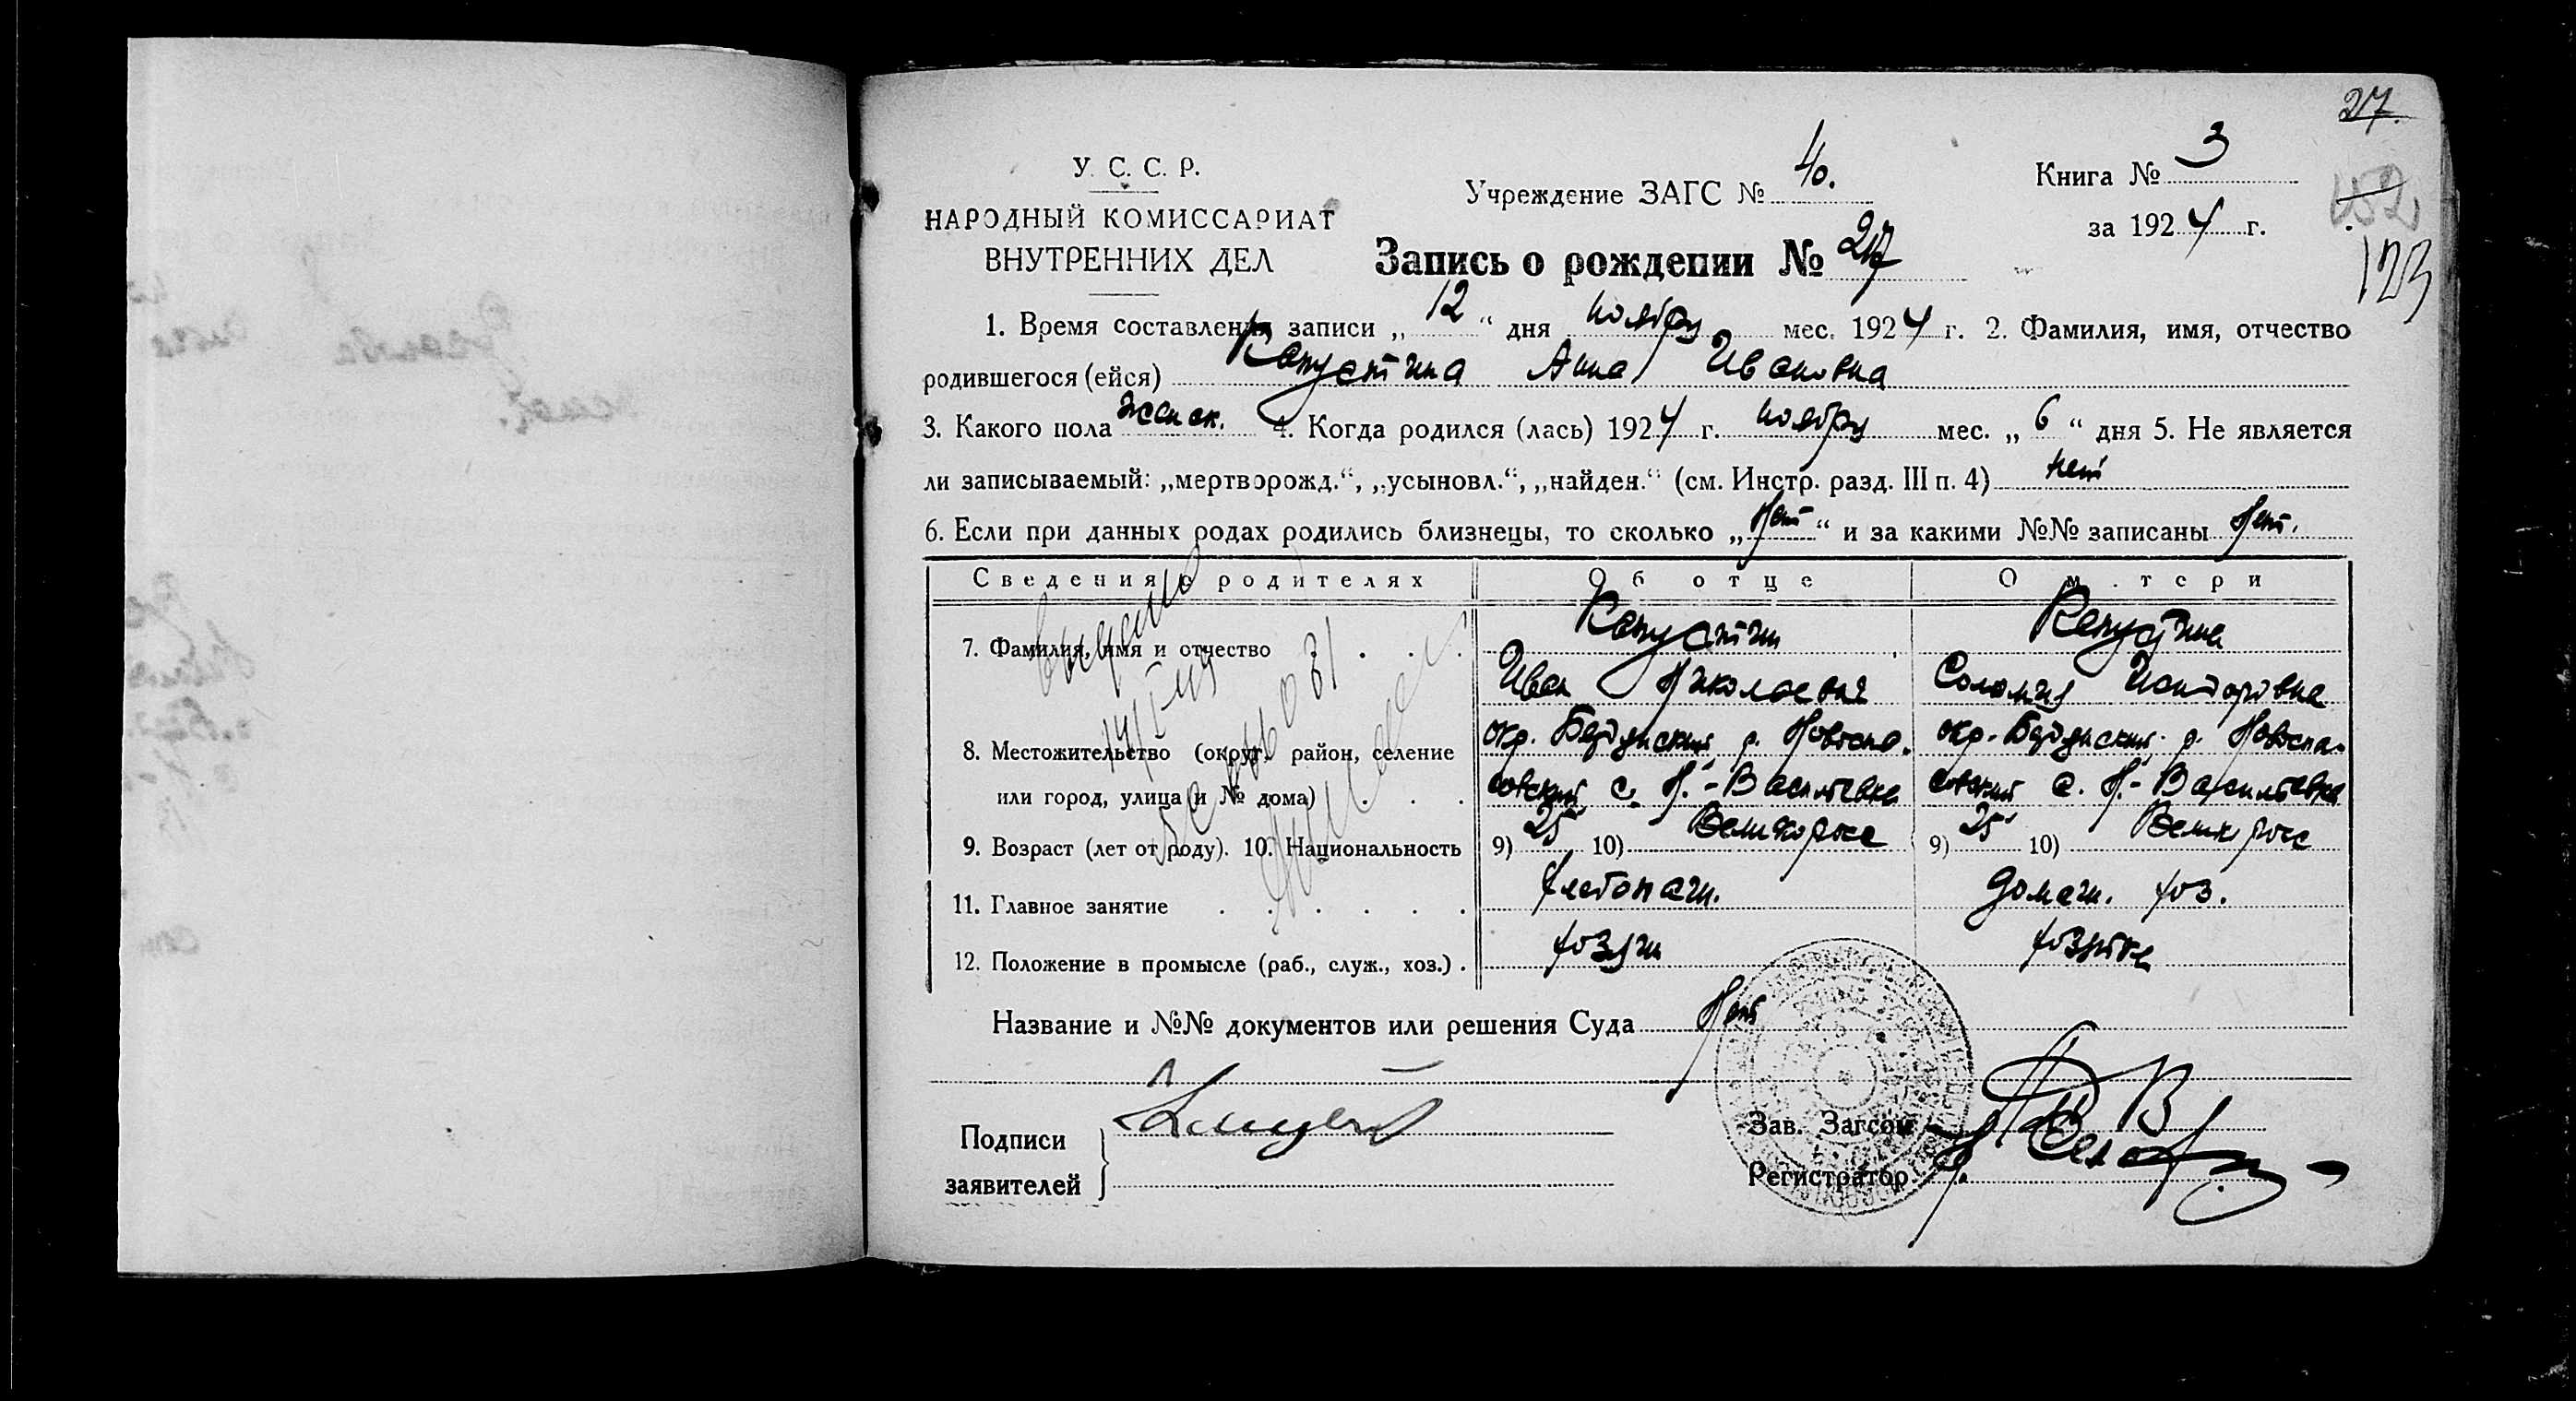 217.
У. С. С. Р.
НАРОДНЫЙ КОМИССАРИАТ
ВНУТРЕННИХ ДЕЛ
Учреждение ЗАГС № 40.
Книга № 3
за 1924 г.
123
Запись о рождении № 217
1. Время составления записи „12“ дня ноября мес. 1924 г. 2. Фамилия, имя, отчество
родившегося (ейся) Капустина Анна Ивановна
3. Какого пола женск. 4. Когда родился (лась) 1924 г. ноября мес. „6“ дня 5. Не является
ли записываемый: „мертворожд.“, „усыновл.“, „найден.“ (см. Инстр. разд. III п. 4) нет
6. Если при данных родах родились близнецы, то сколько „Нет“ и за какими №№ записаны Нет.
Сведения о родителях Об отце О м.тери
7. Фамилия, имя и отчество Капустин Капустина
Иван Николаевич Соломия Исидоровна
8. Местожительство (округ, район, селение окр. Бердянский р. Новоспа- окр. Бердянский р. Новоспа-
или город, улица и № дома) совский с. Н.-Васильевка совский с. Н.-Васильевка
9. Возраст (лет от роду). 10. Национальность 9) 25 10) Великоросс 9) 25 10) Великоросс
11. Главное занятие хлебопаш. домаш. хоз.
12. Положение в промысле (раб., служ., хоз.) хозяин хозяйка
Название и №№ документов или решения Суда Нет
Подписи
заявителей
Зав. Загсом
Регистратор